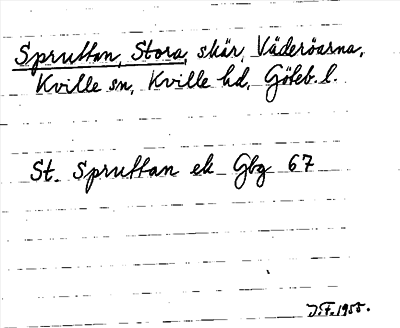 Spruttan, Stora, skär, Väderöarna,
Kville sn, Kville hd, Göteb. l.
St. Spruttan ek Gbg 67
J.F. 1955.